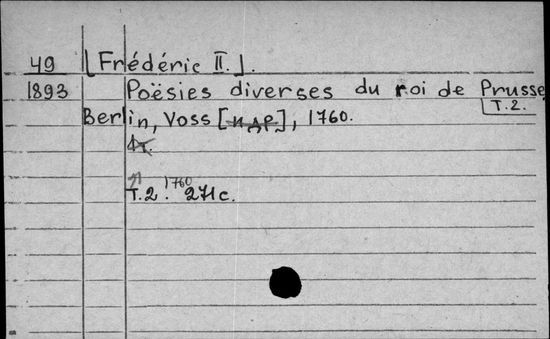 49 [Frédéric II.].
1893 Poësies diverses du roi de Prusse
T.2.
Berlin, Voss [и др], 1760.
Т.2. 1760 271 с.